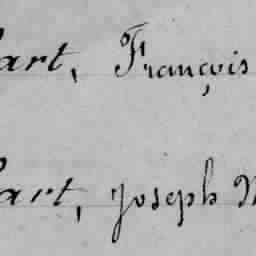 art, François
art, Joseph